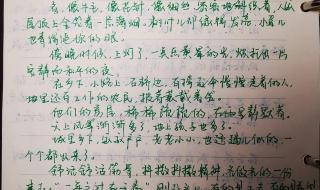 看，像牛毛，像花针，像细丝，密密地斜织着，人家
屋顶上全笼着一片薄烟。树叶儿却绿得发亮，小草儿
也青得逼你的眼。
傍晚时候，上灯了，一点点黄晕的光，烘托出一片
安静而和平的夜。
在乡下，小路上，石桥边，有撑起伞慢慢走着的人，
地里还有工作的农民，披着蓑戴着笠。
他们的房屋，稀稀疏疏的，在雨里静默着。
天上风筝渐渐多了，地上孩子也多了。
城里乡下，家家户户，老老小小，也赶趟儿似的，一
个个都出来了。
舒活舒活筋骨，抖擞抖擞精神，各做各的一份